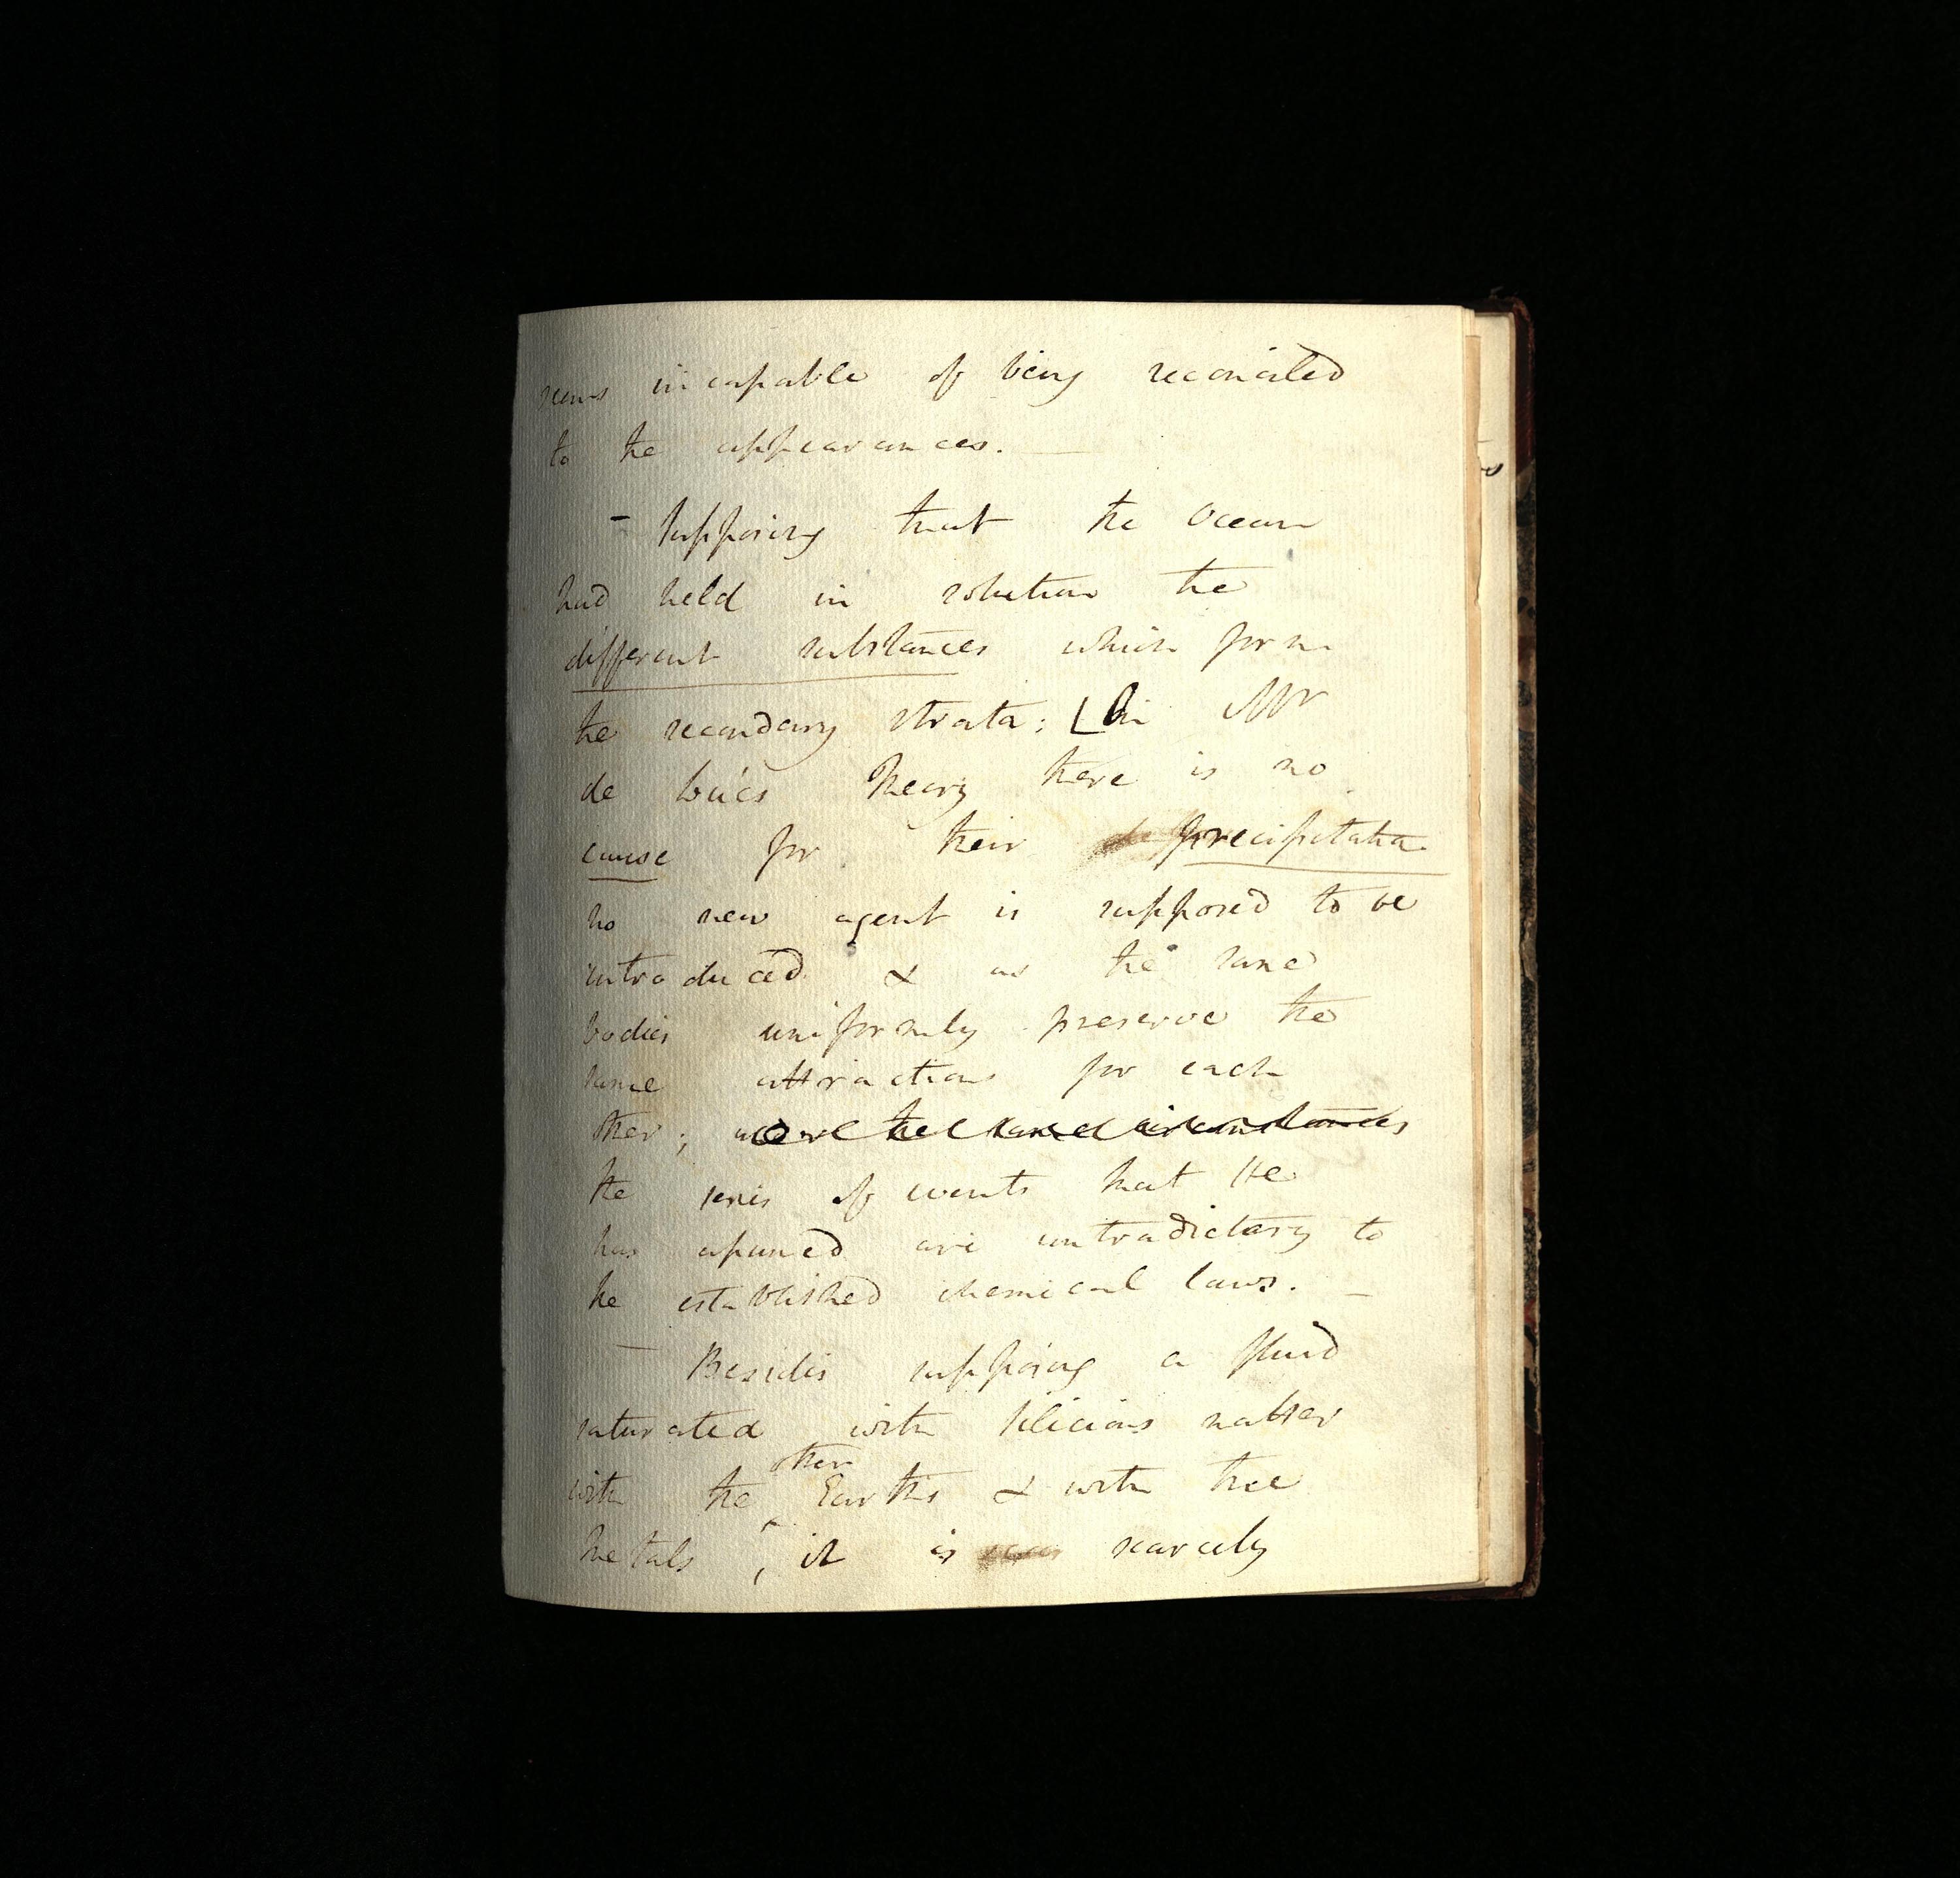 seems incapable of being reconciled
to the appearances. —
– Supposing that the Ocean
had held in solution the
different substances which form
the secondary strata; [in Mr
de Luc's Theory there is no
cause for their precipitation
no new agent is supposed to be
introduced & as the same
bodies uniformly preserve the
same attractions for each
other; under the same circumstances
the series of events that He
has assumed are contradictory to
the established chemical laws. —
— Besides supposing a fluid
saturated with silicious matter
other
with the Earths & with the
metals, it is scarcely